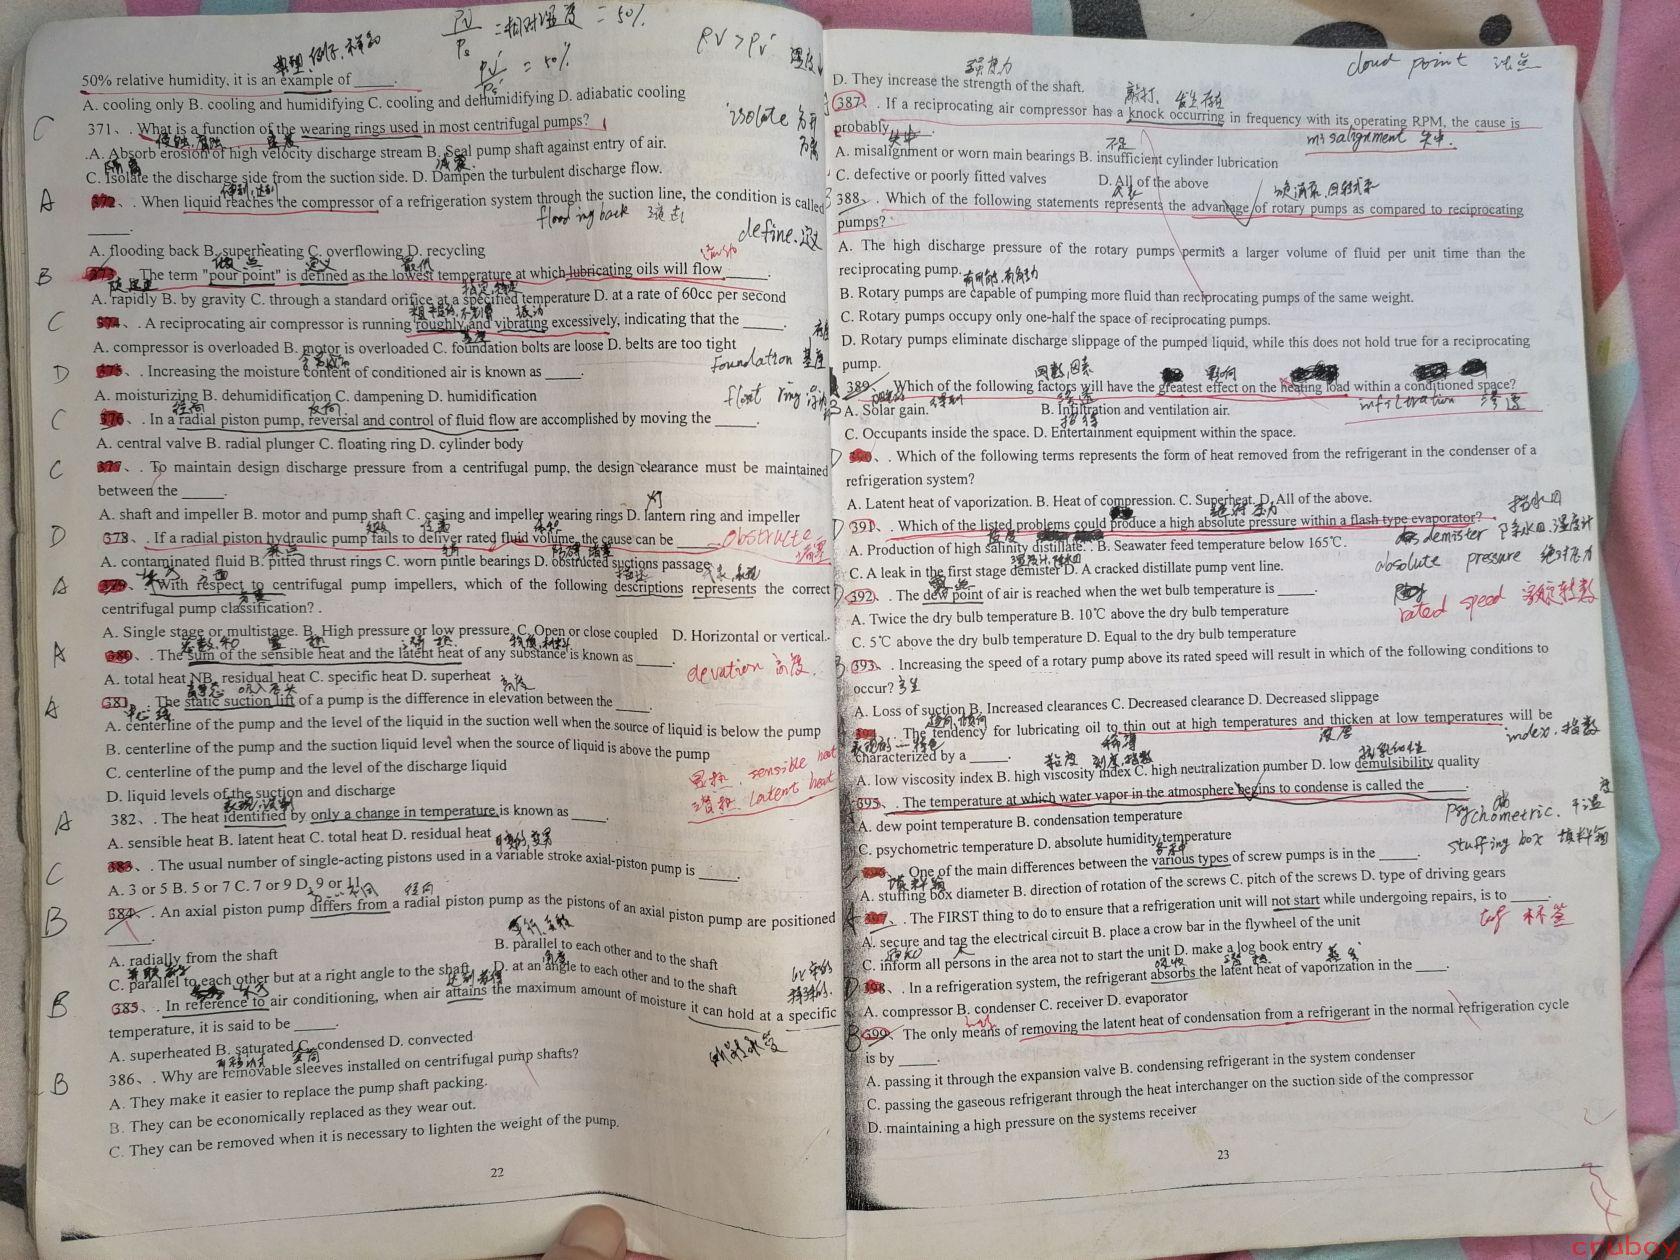 Pv/Ps =相对湿度 = 50%
Pv > Pv'
典型 例子.样本
Pv'/Ps' = 50%
50% relative humidity, it is an example of _____.
A. cooling only B. cooling and humidifying C. cooling and dehumidifying D. adiabatic cooling
isolate
C
371、. What is a function of the wearing rings used in most centrifugal pumps?
.A. Absorb erosion of high velocity discharge stream B. Seal pump shaft against entry of air.
隔离
C. Isolate the discharge side from the suction side. D. Dampen the turbulent discharge flow.
A
372、. When liquid reaches the compressor of a refrigeration system through the suction line, the condition is called
_____.
flooding back
define.定义
A. flooding back B. superheating C. overflowing D. recycling
B
373、. The term "pour point" is defined as the lowest temperature at which lubricating oils will flow _____.
A. rapidly B. by gravity C. through a standard orifice at a specified temperature D. at a rate of 60cc per second
C
374、. A reciprocating air compressor is running roughly and vibrating excessively, indicating that the _____.
A. compressor is overloaded B. motor is overloaded C. foundation bolts are loose D. belts are too tight
Foundation 基座
D
375、. Increasing the moisture content of conditioned air is known as _____.
A. moisturizing B. dehumidification C. dampening D. humidification
float ring
径向
反向
C
376、. In a radial piston pump, reversal and control of fluid flow are accomplished by moving the _____.
A. central valve B. radial plunger C. floating ring D. cylinder body
C
377、. To maintain design discharge pressure from a centrifugal pump, the design clearance must be maintained
between the _____.
灯
A. shaft and impeller B. motor and pump shaft C. casing and impeller wearing rings D. lantern ring and impeller
D
378、. If a radial piston hydraulic pump fails to deliver rated fluid volume, the cause can be _____.
obstructe
堵塞
A. contaminated fluid B. pitted thrust rings C. worn pintle bearings D. obstructed suctions passage
A
379、. With respect to centrifugal pump impellers, which of the following descriptions represents the correct
centrifugal pump classification? .
A. Single stage or multistage. B. High pressure or low pressure. C. Open or close coupled D. Horizontal or vertical.
A
380、. The sum of the sensible heat and the latent heat of any substance is known as _____.
A. total heat NB. residual heat C. specific heat D. superheat
devation 高度.
A
381、. The static suction lift of a pump is the difference in elevation between the _____.
中心线
A. centerline of the pump and the level of the liquid in the suction well when the source of liquid is below the pump
B. centerline of the pump and the suction liquid level when the source of liquid is above the pump
C. centerline of the pump and the level of the discharge liquid
显热. sensible heat
D. liquid levels of the suction and discharge
潜热. latent heat
A
382、. The heat identified by only a change in temperature is known as _____.
A. sensible heat B. latent heat C. total heat D. residual heat
C
383、. The usual number of single-acting pistons used in a variable stroke axial-piston pump is _____.
A. 3 or 5 B. 5 or 7 C. 7 or 9 D. 9 or 11
径向
B
384、. An axial piston pump differs from a radial piston pump as the pistons of an axial piston pump are positioned
_____.
A. radially from the shaft B. parallel to each other and to the shaft
C. parallel to each other but at a right angle to the shaft D. at an angle to each other and to the shaft
B
385、. In reference to air conditioning, when air attains the maximum amount of moisture it can hold at a specific
temperature, it is said to be _____.
A. superheated B. saturated C. condensed D. convected
B
386、. Why are removable sleeves installed on centrifugal pump shafts?
A. They make it easier to replace the pump shaft packing.
B. They can be economically replaced as they wear out.
C. They can be removed when it is necessary to lighten the weight of the pump.
22
cloud point 浊点
D. They increase the strength of the shaft.
敲打. 发生.存在
387、. If a reciprocating air compressor has a knock occurring in frequency with its operating RPM, the cause is
probably _____.
失中
不足
missalignment 失中.
A. misalignment or worn main bearings B. insufficient cylinder lubrication
C. defective or poorly fitted valves D. All of the above
388、. Which of the following statements represents the advantage of rotary pumps as compared to reciprocating
pumps?
A. The high discharge pressure of the rotary pumps permits a larger volume of fluid per unit time than the
reciprocating pump.
B. Rotary pumps are capable of pumping more fluid than reciprocating pumps of the same weight.
C. Rotary pumps occupy only one-half the space of reciprocating pumps.
D. Rotary pumps eliminate discharge slippage of the pumped liquid, while this does not hold true for a reciprocating
pump.
因数.因素
影响
389、. Which of the following factors will have the greatest effect on the heating load within a conditioned space?
A. Solar gain. B. Infiltration and ventilation air.
infiltration 渗透
C. Occupants inside the space. D. Entertainment equipment within the space.
D
390、. Which of the following terms represents the form of heat removed from the refrigerant in the condenser of a
refrigeration system?
A. Latent heat of vaporization. B. Heat of compression. C. Superheat. D. All of the above.
绝对压力
D
391、. Which of the listed problems could produce a high absolute pressure within a flash type evaporator?
demister
A. Production of high salinity distillate. . B. Seawater feed temperature below 165℃.
absolute pressure 绝对压力
C. A leak in the first stage demister D. A cracked distillate pump vent line.
露点
D
392、. The dew point of air is reached when the wet bulb temperature is _____.
rated speed 额定转数
A. Twice the dry bulb temperature B. 10℃ above the dry bulb temperature
C. 5℃ above the dry bulb temperature D. Equal to the dry bulb temperature
B
393、. Increasing the speed of a rotary pump above its rated speed will result in which of the following conditions to
occur?
A. Loss of suction B. Increased clearances C. Decreased clearance D. Decreased slippage
394、. The tendency for lubricating oil to thin out at high temperatures and thicken at low temperatures will be
index.指数
characterized by a _____.
A. low viscosity index B. high viscosity index C. high neutralization number D. low demulsibility quality
395、. The temperature at which water vapor in the atmosphere begins to condense is called the _____.
A. dew point temperature B. condensation temperature
Psychometric.
C. psychometric temperature D. absolute humidity temperature
stuffing box 填料箱
396、. One of the main differences between the various types of screw pumps is in the _____.
填料箱
A. stuffing box diameter B. direction of rotation of the screws C. pitch of the screws D. type of driving gears
A
397、. The FIRST thing to do to ensure that a refrigeration unit will not start while undergoing repairs, is to _____.
A. secure and tag the electrical circuit B. place a crow bar in the flywheel of the unit
C. inform all persons in the area not to start the unit D. make a log book entry
D
398、. In a refrigeration system, the refrigerant absorbs the latent heat of vaporization in the _____.
A. compressor B. condenser C. receiver D. evaporator
B
399、. The only means of removing the latent heat of condensation from a refrigerant in the normal refrigeration cycle
is by _____.
A. passing it through the expansion valve B. condensing refrigerant in the system condenser
C. passing the gaseous refrigerant through the heat interchanger on the suction side of the compressor
D. maintaining a high pressure on the systems receiver
23
cruboy